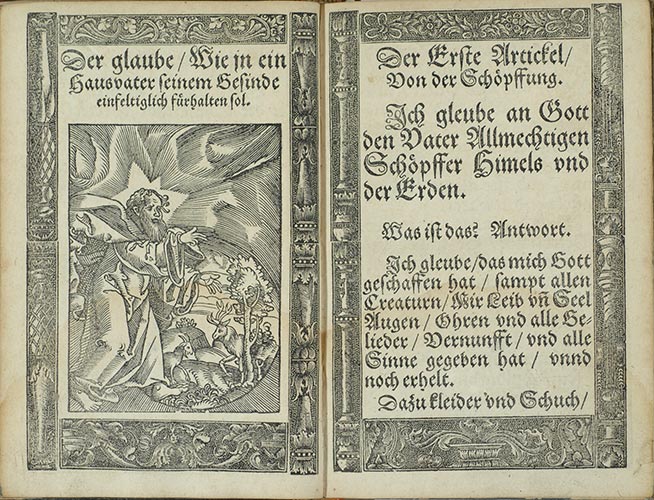 Der glaube / Wie jn ein
Hausvater seinem Gesinde
einfeltiglich fürhalten sol.
Der Erste Artickel /
Von der Schöpffung.
Ich gleube an Gott
den Vater Allmechtigen
Schöpffer Himels vnd
der Erden.
Was ist das? Antwort.
Ich gleube / das mich Gott
geschaffen hat / sampt allen
Creaturn / Mir Leib vñ Seel
Augen / Ohren vnd alle Ge-
lieder / Vernunfft / vnd alle
Sinne gegeben hat / vnnd
noch erhelt.
Dazu kleider vnd Schuch /